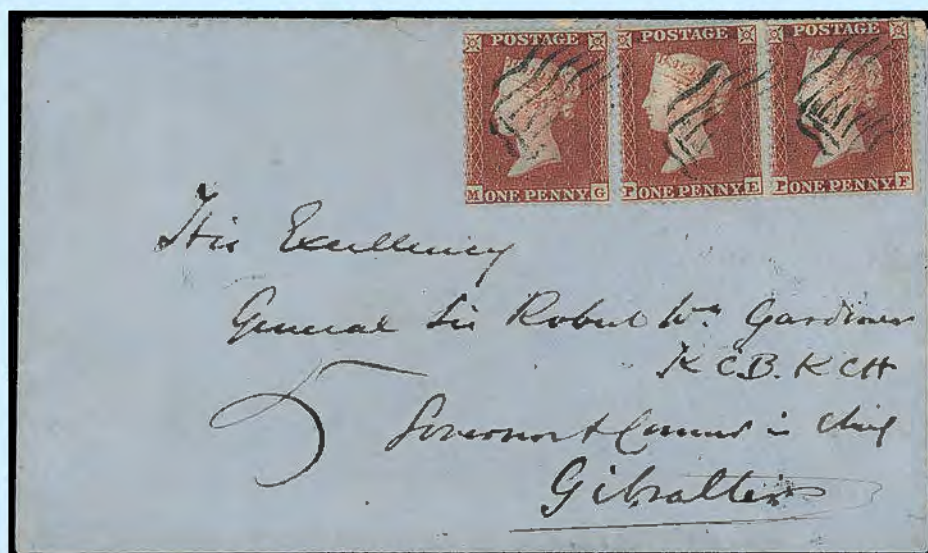 POSTAGE POSTAGE POSTAGE
M ONE PENNY G P ONE PENNY E P ONE PENNY F
His Excellency
General Sir Robert Wm Gardiner
K C.B. K C H
5
Governor & Comm in Chief
Gibralter